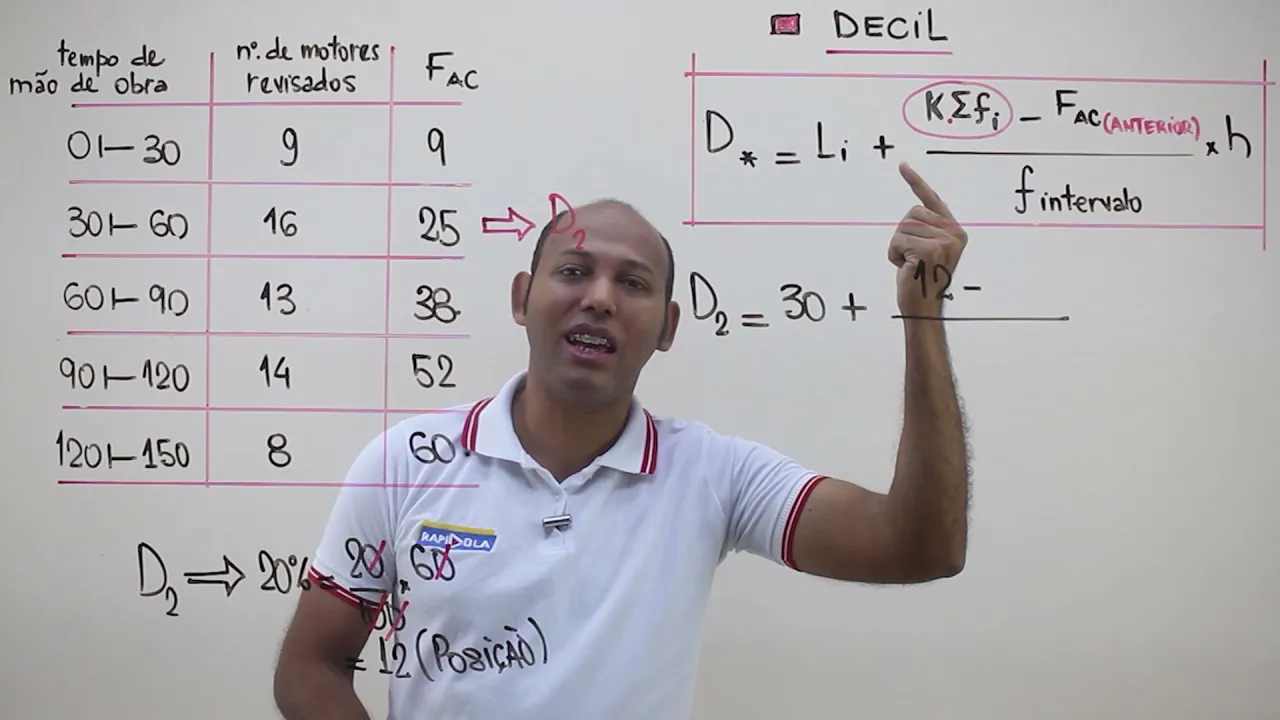 DECIL
tempo de mão de obra | nº. de motores revisados | FAC
0 ⊢ 30 | 9 | 9
30 ⊢ 60 | 16 | 25 ⇨ D₂
60 ⊢ 90 | 13 | 38
90 ⊢ 120 | 14 | 52
120 ⊢ 150 | 8 | 60
D* = Li + (K.Σfi - FAC(ANTERIOR)) / f intervalo * h
D₂ = 30 + 12 -
RAPIDOLA
D₂ ⇒ 20% = 20/100 * 60
= 12 (POSIÇÃO)